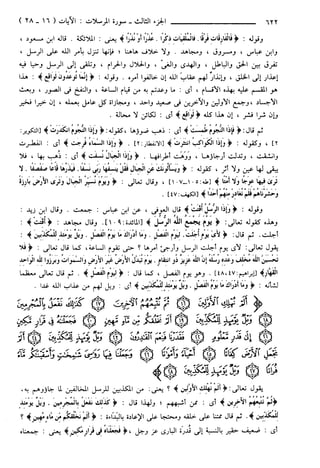 ٦٢٢ الجزء الثالث - سورة المرسلات : الآيات ( ١٦ - ٢٨ )
وقوله : ﴿ فَالْفَارِقَاتِ فَرْقًا . فَالْمُلْقِيَاتِ ذِكْرًا . عُذْرًا أَوْ نُذْرًا ﴾ يعنى : الملائكة . قاله ابن مسعود ،
وابن عباس ، ومسروق ، ومجاهد . ولا خلاف هاهنا ؛ فإنها تنزل بأمر الله على الرسل ،
تفرق بين الحق والباطل ، والهدى والغىّ ، والحلال والحرام ، وتلقى إلى الرسل وحيا فيه
إعذار إلى الخلق ، وإنذارٌ لهم عقابَ الله إن خالفوا أمره . وقوله : ﴿ إِنَّمَا تُوعَدُونَ لَوَاقِعٌ ﴾ : هذا
هو المقسم عليه بهذه الأقسام ، أى : ما وعدتم به من قيام الساعة ، والنفخ فى الصور ، وبعث
الأجساد ، وجمع الأولين والآخرين فى صعيد واحد ، ومجازاة كل عامل بعمله ، إن خيرا فخير
وإن شرا فشر ، إن هذا كله ﴿ لَوَاقِعٌ ﴾ أى : لكائن لا محالة .
ثم قال : ﴿ فَإِذَا النُّجُومُ طُمِسَتْ ﴾ أى : ذهب ضوؤها ، كقوله : ﴿ وَإِذَا النُّجُومُ انكَدَرَتْ ﴾ [التكوير:
٢] ، وكقوله : ﴿ وَإِذَا الْكَوَاكِبُ انتَثَرَتْ ﴾ [الانفطار:٢] . ﴿ وَإِذَا السَّمَاءُ فُرِجَتْ ﴾ أى : انفطرت
وانشقت ، وتدلت أرجاؤها ، وَوَهَت أطرافها . ﴿ وَإِذَا الْجِبَالُ نُسِفَتْ ﴾ أى : ذهب بها ، فلا
يبقى لها عين ولا أثر ، كقوله : ﴿ وَيَسْأَلُونَكَ عَنِ الْجِبَالِ فَقُلْ يَنسِفُهَا رَبِّي نَسْفًا . فَيَذَرُهَا قَاعًا صَفْصَفًا . لا
تَرَىٰ فِيهَا عِوَجًا وَلا أَمْتًا ﴾ [طه:١٠٥-١٠٧] ، وقال تعالى : ﴿ وَيَوْمَ نُسَيِّرُ الْجِبَالَ وَتَرَى الأَرْضَ بَارِزَةً
وَحَشَرْنَاهُمْ فَلَمْ نُغَادِرْ مِنْهُمْ أَحَدًا ﴾ [الكهف:٤٧] .
وقوله : ﴿ وَإِذَا الرُّسُلُ أُقِّتَتْ ﴾ قال العوفى ، عن ابن عباس : جمعت . وقال ابن زيد :
وهذه كقوله تعالى : ﴿ يَوْمَ يَجْمَعُ اللَّهُ الرُّسُلَ ﴾ [المائدة:١٠٩] . وقال مجاهد : ﴿ أُقِّتَتْ ﴾ :
أجلت . ثم قال : ﴿ لأَيِّ يَوْمٍ أُجِّلَتْ . لِيَوْمِ الْفَصْلِ . وَمَا أَدْرَاكَ مَا يَوْمُ الْفَصْلِ . وَيْلٌ يَوْمَئِذٍ لِّلْمُكَذِّبِينَ ﴾ :
يقول تعالى : لأى يوم أجلت الرسل وأرجئ أمرها ؟ حتى تقوم الساعة ، كما قال تعالى : ﴿ فَلا
تَحْسَبَنَّ اللَّهَ مُخْلِفَ وَعْدِهِ رُسُلَهُ إِنَّ اللَّهَ عَزِيزٌ ذُو انتِقَامٍ . يَوْمَ تُبَدَّلُ الأَرْضُ غَيْرَ الأَرْضِ وَالسَّمَوَاتُ وَبَرَزُوا لِلَّهِ الْوَاحِدِ
الْقَهَّارِ ﴾ [إبراهيم:٤٧،٤٨] . وهو يوم الفصل ، كما قال : ﴿ لِيَوْمِ الْفَصْلِ ﴾ . ثم قال تعالى معظما
لشأنه : ﴿ وَمَا أَدْرَاكَ مَا يَوْمُ الْفَصْلِ . وَيْلٌ يَوْمَئِذٍ لِّلْمُكَذِّبِينَ ﴾ أى : ويل لهم من عذاب الله غدا .
﴿ أَلَمْ نُهْلِكِ الْأَوَّلِينَ ثُمَّ نُتْبِعُهُمُ الْآخِرِينَ كَذَٰلِكَ نَفْعَلُ بِالْمُجْرِمِينَ
وَيْلٌ يَوْمَئِذٍ لِّلْمُكَذِّبِينَ أَلَمْ نَخْلُقكُّم مِّن مَّاءٍ مَّهِينٍ فَجَعَلْنَاهُ فِي قَرَارٍ مَّكِينٍ
إِلَىٰ قَدَرٍ مَّعْلُومٍ فَقَدَرْنَا فَنِعْمَ الْقَادِرُونَ وَيْلٌ يَوْمَئِذٍ لِّلْمُكَذِّبِينَ أَلَمْ نَجْعَلِ
الْأَرْضَ كِفَاتًا أَحْيَاءً وَأَمْوَاتًا وَجَعَلْنَا فِيهَا رَوَاسِيَ شَامِخَاتٍ وَأَسْقَيْنَاكُم مَّاءً فُرَاتًا
وَيْلٌ يَوْمَئِذٍ لِّلْمُكَذِّبِينَ ﴾
يقول تعالى : ﴿ أَلَمْ نُهْلِكِ الأَوَّلِينَ ﴾ ؟ يعنى : من المكذبين للرسل المخالفين لما جاؤوهم به.
﴿ ثُمَّ نُتْبِعُهُمُ الآخِرِينَ ﴾ أى : ممن أشبههم ؛ ولهذا قال : ﴿ كَذَلِكَ نَفْعَلُ بِالْمُجْرِمِينَ . وَيْلٌ يَوْمَئِذٍ
لِّلْمُكَذِّبِينَ ﴾. ثم قال ممتنا على خلقه ومحتجا على الإعادة بالبَدَاءة : ﴿ أَلَمْ نَخْلُقكُّم مِّن مَّاءٍ مَّهِينٍ ﴾ ؟
أى : ضعيف حقير بالنسبة إلى قُدرَة البارى عز وجل ، ﴿ فَجَعَلْنَاهُ فِي قَرَارٍ مَّكِينٍ ﴾ يعنى : جمعناه